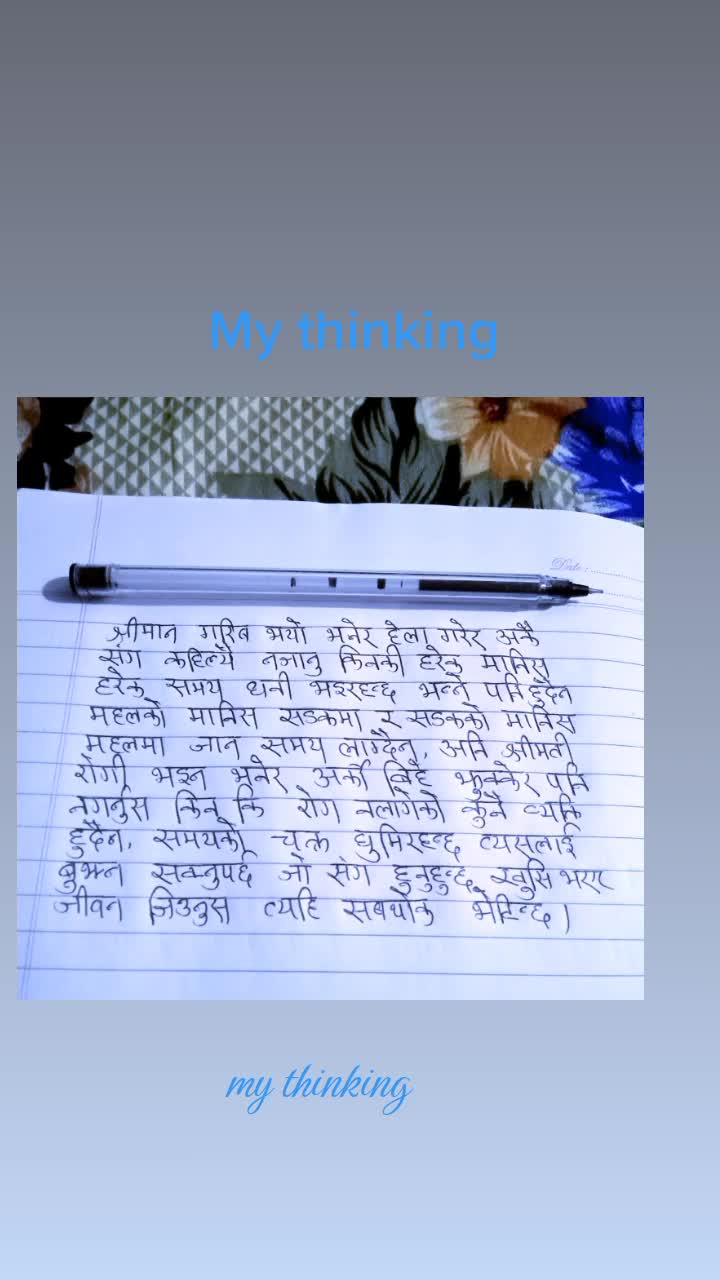 My thinking
Date :
श्रीमान गरिब भयो भनेर हेला गरेर अर्कै
संग कहिल्यै नजानु किनकी हरेक मानिस
हरेक समय धनी भइरहन्छ भन्ने पनि हुदैन
महलको मानिस सडकमा र सडकको मानिस
महलमा जान समय लाग्दैन, अनि श्रीमती
रोगी भइन भनेर अर्को बिहे झुक्केर पनि
नगर्नुस किन कि रोग नलागेको कुनै व्यक्ति
हुदैन, समयको चक्र घुमिरहन्छ त्यसलाई
बुझ्न सक्नुपर्छ जो संग हुनुहुन्छ खुसि भएर
जीवन जिउनुस त्यहि सबथोक भेटिन्छ।
my thinking